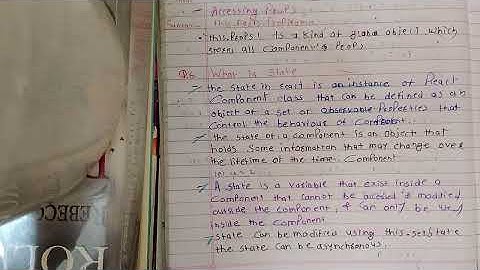 Accessing Props
this.props.propName
• this.props! Is a kind of global object which
stores all component's Props.
Q6. What is State
the state in react is an instance of React
Component class that can be defined as an
object of a set of observable Properties that
control the behaviour of component.
the state of a component is an object that
holds some information that may change over
the lifetime of the time. Component
A state is a variable that exist inside a
component that cannot be accessed & modified
outside the component, & can only be
inside the component
state can be modified using this.setstate
the state can be asynchronous.
EBECC
KOL